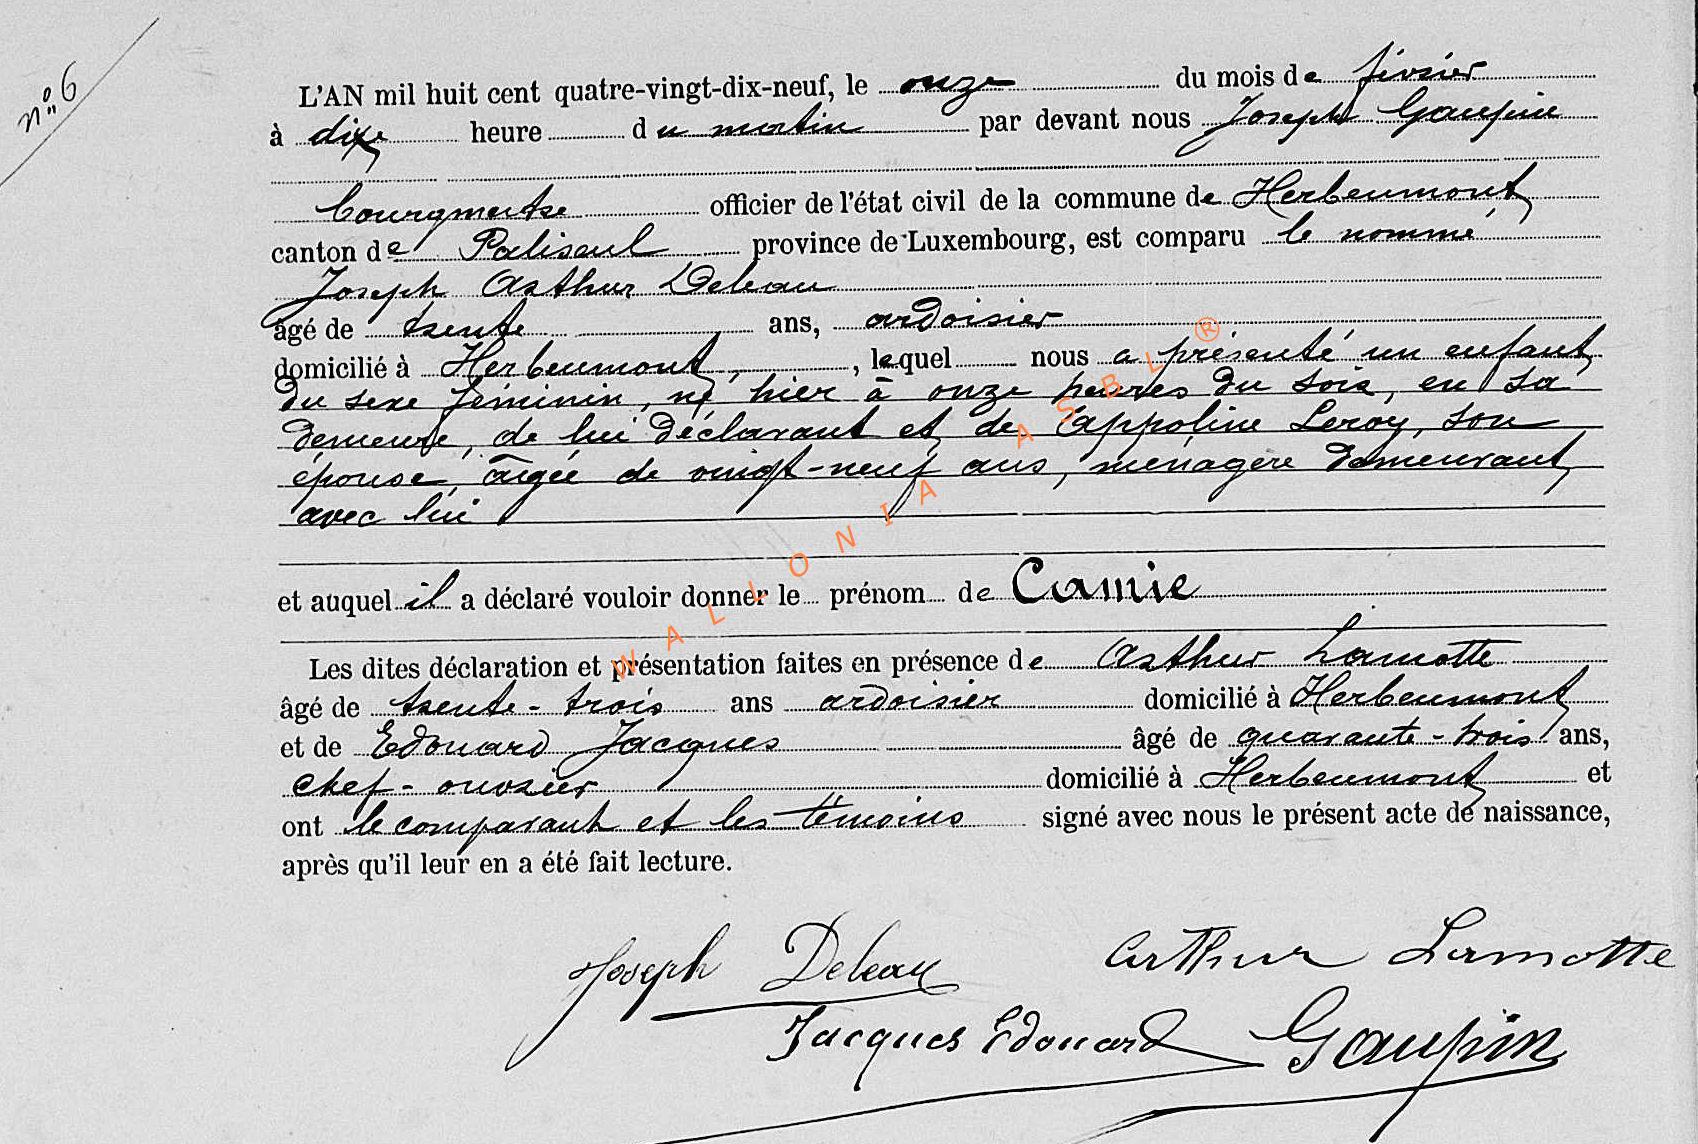 n° 6
L'AN mil huit cent quatre-vingt-dix-neuf, le onze du mois de février
à dix heure du matin par devant nous Joseph Gaupin
bourgmestre officier de l'état civil de la commune de Herbeumont
canton de Paliseul province de Luxembourg, est comparu le nommé
Joseph Arthur Deleau
âgé de trente ans, ardoisier
domicilié à Herbeumont, lequel nous a présenté un enfant
du sexe féminin, né hier à onze heures du soir, en sa
demeure, de lui déclarant et de Appoline Leroy, son
épouse, âgée de vingt-neuf ans, ménagère demeurant
avec lui
et auquel il a déclaré vouloir donner le prénom de Camie
Les dites déclaration et présentation faites en présence de Arthur Lamotte
âgé de trente-trois ans ardoisier domicilié à Herbeumont
et de Edouard Jacques âgé de quarante-trois ans,
chef-ouvrier domicilié à Herbeumont et
ont le comparant et les témoins signé avec nous le présent acte de naissance,
après qu'il leur en a été fait lecture.
Joseph Deleau Arthur Lamotte
Jacques Edouard Gaupin
WALLONIA ASBL ®